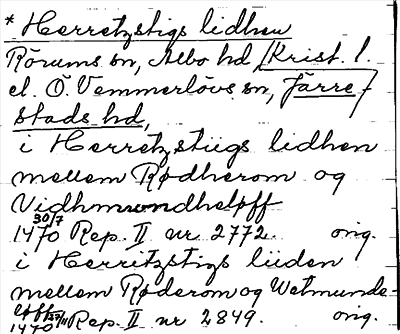 * Herretzstigs lidhen
Rörums sn, Albo hd, Krist. l.
el. Ö. Vemmerlövs sn, Järre-
stads hd,
i Herretzstiigs lidhen
mellem Rødherom og
Vidhmundheløff
30/7
1470 Rep. II nr 2772. orig.
i Herritzstigs liiden
mellem Røderom og Wetmunde-
1470 Rep. II nr 2849. orig.